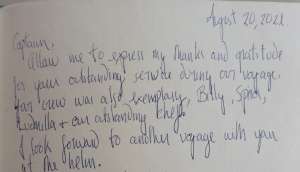 August 20, 2021
Captain,
Allow me to express my thanks and gratitude
for your outstanding service during our voyage.
Your crew was also exemplary, Billy,
Ludmilla + our outstanding chef.
I look forward to another voyage with you
at the helm.